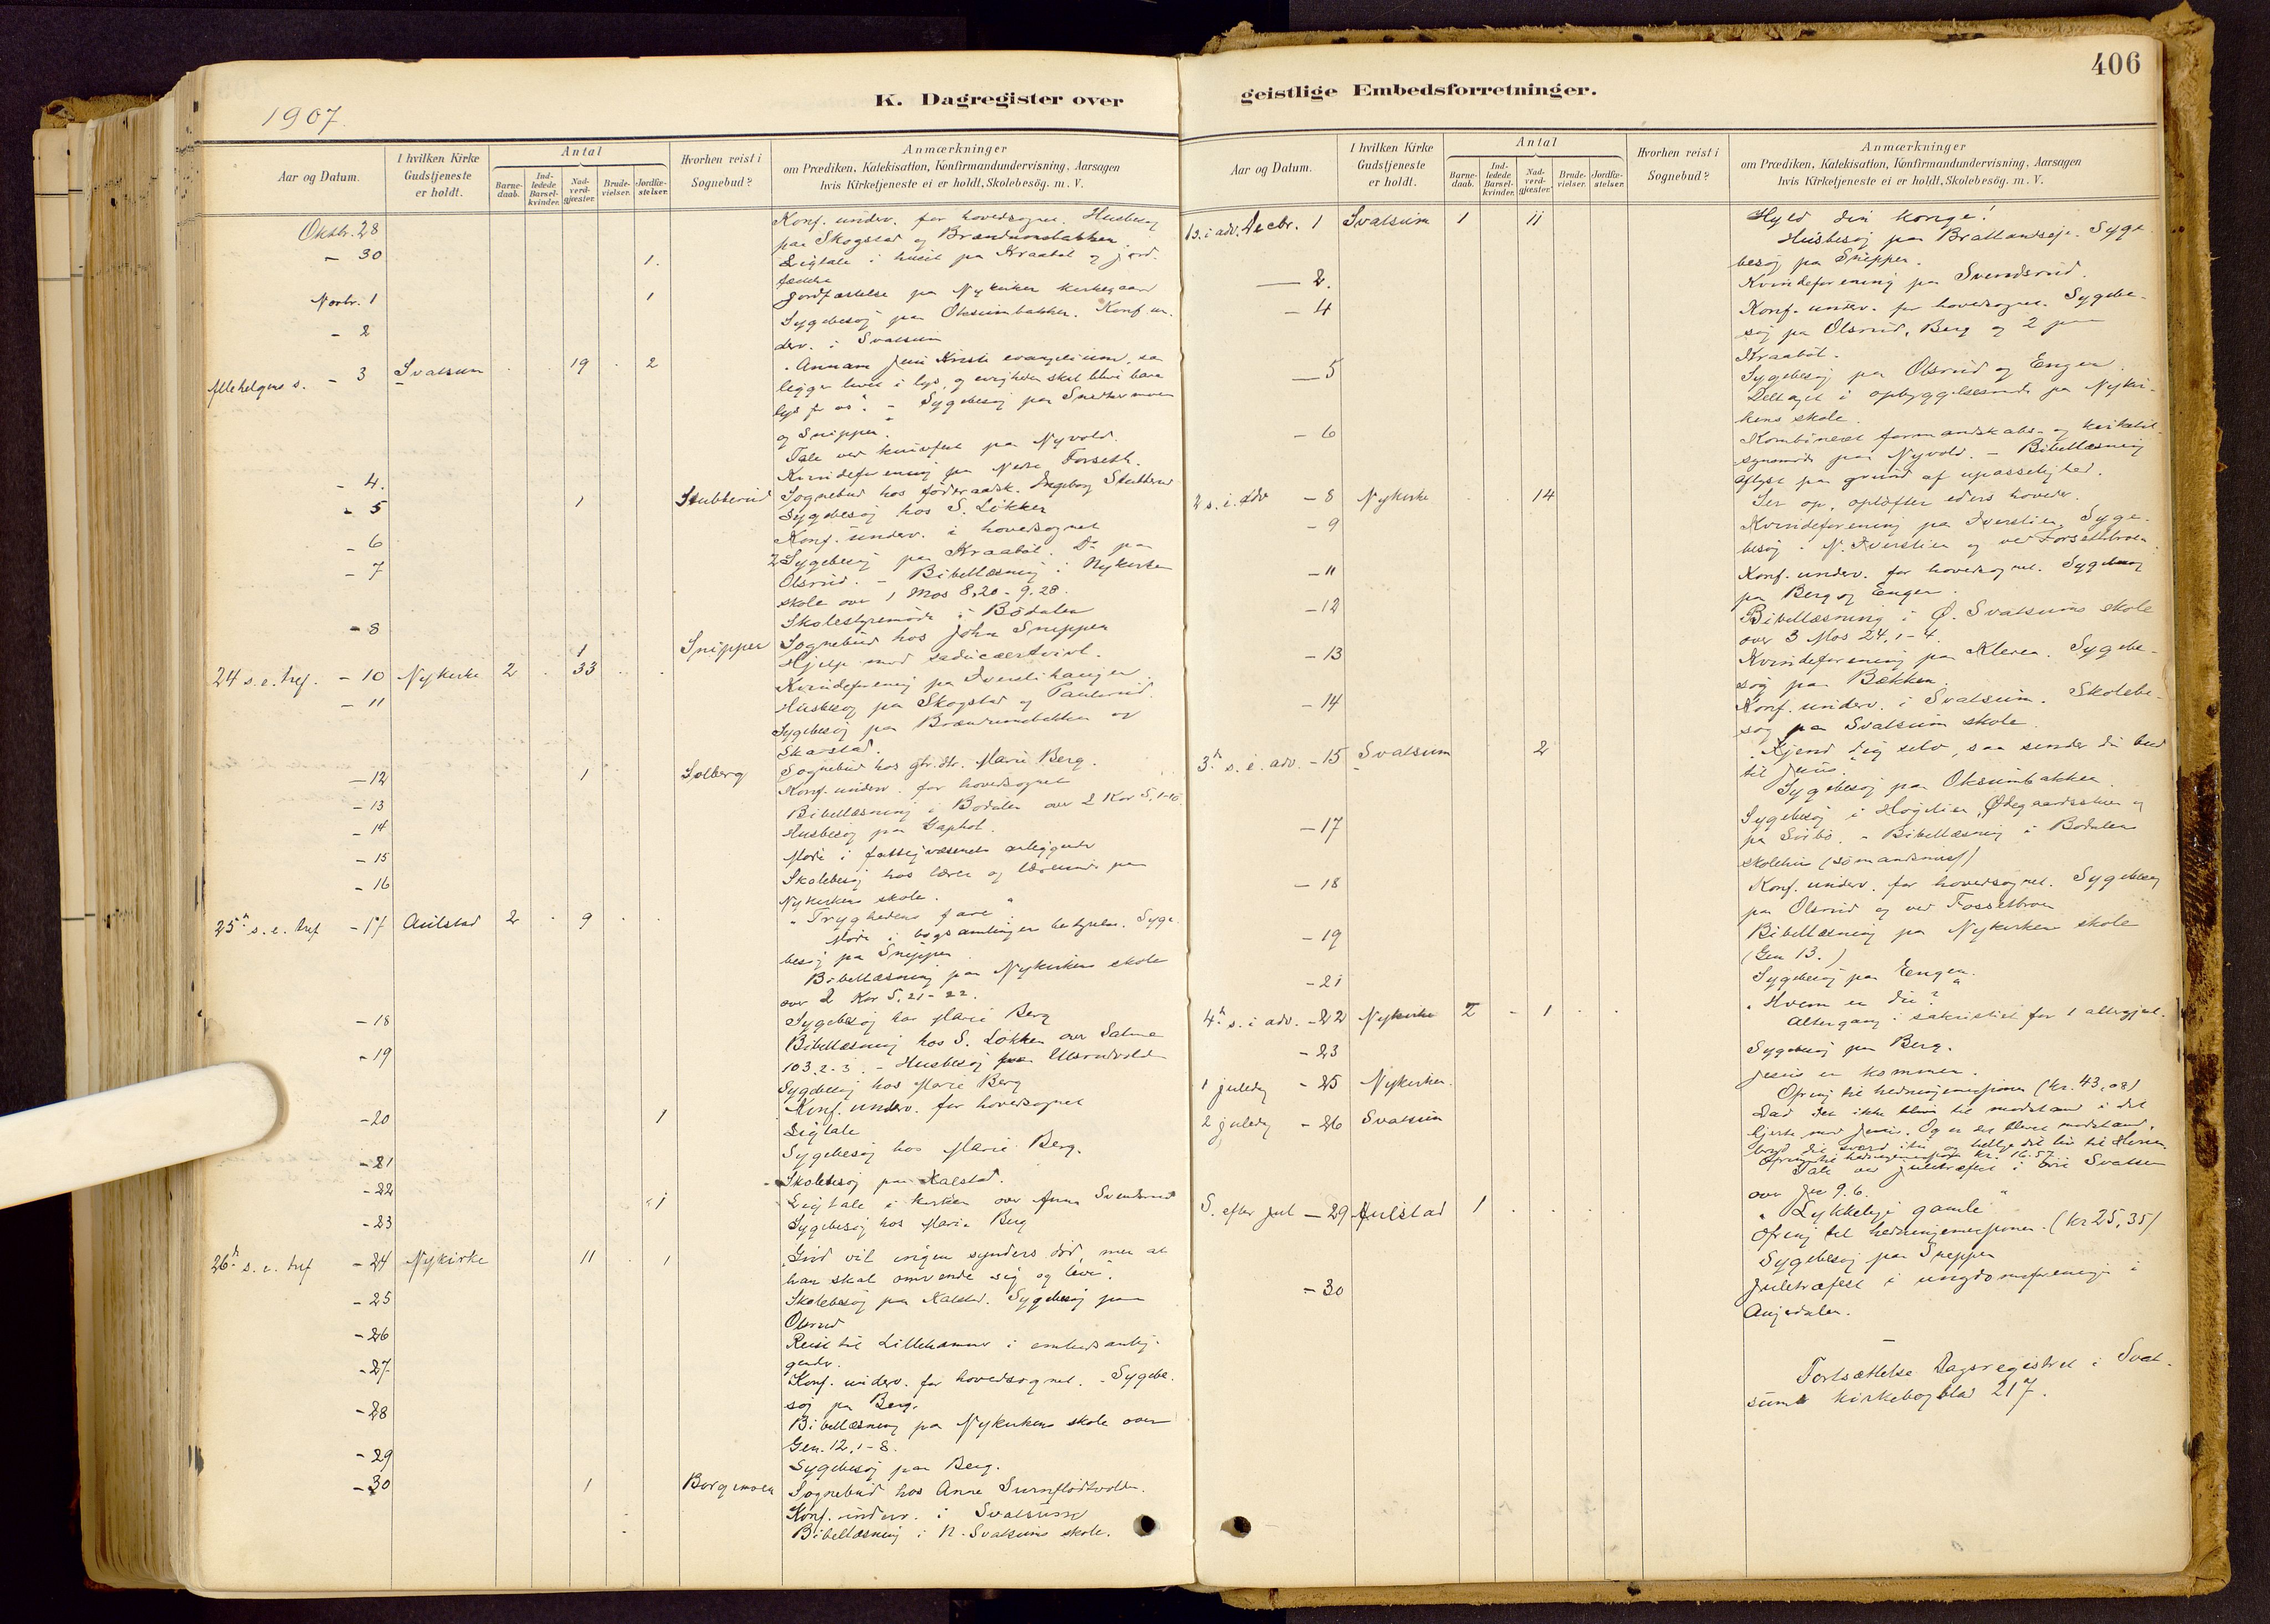 1907.
K. Dagregister over
Aar og Datum.
I hvilken Kirke Gudstjeneste er holdt.
Antal
Barne-daab.
Ind-ledede Barsel-kvinder.
Nad-verd-gjæster.
Brude-vielser.
Jordfæ-stelser.
Hvorhen reist i Sognebud?
Anmærkninger
om Prædiken, Katekisation, Konfirmandundervisning, Aarsagen
hvis Kirketjeneste ei er holdt, Skolebesög. m. V.
Oktbr. 28 Konf. underv. for hovedsognet. Husbesøg
paa Skogstad og Brændumsbakken.
- 30 1. Ligtale i huset paa Kraabøl og jord-
fæstelse
Novbr. 1 1 Jordfæstelse paa Nykirken kirkegaard
Sygebesøg paa Oksumbakken. Konf. un-
- 2 derv. i Svatsum
Allehelgens s. - 3 Svatsum 19 2 Annam Jesu Kristi evangelium, saa
ligger livet i lys, og evigheden skal blive bare
lys for os". - Sygebesøg paa
og Snippen.
Tale ved paa Nyvold.
Kvindeforening paa Nedre Forseth.
- 4. Sognebud hos føderaadsk. Ingeborg Stubberud
- 5 1 Stubberud Sygebesøg hos S. Løkken
Konf. underv. i hovedsognet
- 6 2 Sygebesøg paa Kraabøl. Do paa
- 7 Olsrud. - Bibellæsning i Nykirken
skole over 1 Mos 8,20 - 9.28.
Skolestyremøde i Bødalen
- 8 1 Snippen Sognebud hos John Snippen
Hjelp mod saducæertvivl.
24 s. e. tref. - 10 Nykirke 2 33 Kvindeforening paa Iverslihaugen
- 11 Husbesøg paa Skogstad og Paulsrud.
Sygebesøg paa Brændumsbakken og
Skarstad.
- 12 1 Solberg Sognebud hos Marie Berg.
Konf. underv. for hovedsognet
- 13 Bibellæsning i Bødalen over 2 Kor 5,1-10
- 14 Husbesøg paa
- 15 Møde i fattigvæsenets anliggender
- 16 Skolebesøg hos lærer og paa
Nykirkens skole.
25de s. e. tref - 17 Aulstad 2 9 "Tryghedens fare"
Møde i bogsamlingens bestyrelse. Syge-
besøg paa Snippen
Bibellæsning paa Nykirkens skole
over 2 Kor 5,21-22.
- 18 Sygebesøg hos Marie Berg
Bibellæsning hos S. Løkken over Salme
- 19 103.2-3. - Husbesøg paa
Sygebesøg hos Marie Berg
Konf. underv. for hovedsognet
- 20 1 Ligtale
Sygebesøg hos Marie Berg.
- 21 Skolebesøg paa Kalstad.
- 22 1 Ligtale i kirken over Anna Svendsrud
- 23 Sygebesøg hos Marie Berg
26de s. e. tref - 24 Nykirke 11 1 "Gud vil ingen synders død, men at
han skal omvende sig og leve".
- 25 Skolebesøg paa Kalstad. Sygebesøg paa
Olsrud
- 26 Reist til Lillehammer i embedsanlig-
gender.
- 27 Konf. underv. for hovedsognet. - Sygebe-
søg paa Berg.
- 28 Bibellæsning paa Nykirkens skole over
Gen. 12,1-8.
- 29 Sygebesøg paa Berg.
- 30 1 Borgemoen Sognebud hos Anne
Konf. underv. i Svatsum
Bibellæsning i N. Svatsums skole.
406
geistlige Embedsforretninger.
Aar og Datum.
I hvilken Kirke Gudstjeneste er holdt.
Antal
Barne-daab.
Ind-ledede Barsel-kvinder.
Nad-verd-gjæster.
Brude-vielser.
Jordfæ-stelser.
Hvorhen reist i Sognebud?
Anmærkninger
om Prædiken, Katekisation, Konfirmandundervisning, Aarsagen
hvis Kirketjeneste ei er holdt, Skolebesög. m. V.
1 s. i adv. Decbr. 1 Svatsum 1 11 Hyld din konge!
Husbesøg paa Brattlandseje. Syge-
besøg paa Snippen.
- 2. Kvindeforening paa Svendsrud.
- 4 Konf. underv. for hovedsognet. Sygebe-
søg paa Olsrud, Berg og 2 paa
Kraabøl.
- 5 Sygebesøg paa Olsrud og Engen.
Deltaget i opbyggelsesmøde paa Nykir-
kens skole.
- 6 Kombineret formandskabs- og kirketil-
synsmøde paa Nyvold. - Bibellæsning
aflyst paa grund af upasselighed.
2 s. i. adv - 8 Nykirke 14 Ser op, opløfter eders hoveder.
- 9 Kvindeforening paa Iverslien. Syge-
besøg i N. Iverslien og ved Forsethbroen.
- 11 Konf. underv. for hovedsognet. Sygebesøg
paa Berg og Engen.
- 12 Bibellæsning i Ø. Svatsums skole
over 3 Mos 24,1-4.
- 13 Kvindeforening paa Kleven. Sygebe-
søg paa Bækken.
- 14 Konf. underv. i Svatsum. Skolebe-
søg paa Svatsum skole.
3de s. i. adv. - 15 Svatsum 2 "Kjend dig selv, saa sender du bud
til Jesus."
Sygebesøg paa Oksumbakken
- 17 Sygebesøg i Høgelien, Ødegaardsstuen og
paa - Bibellæsning i Bødalen
skolehus (sømandsmis.)
- 18 Konf. underv. for hovedsognet. Sygebesøg
paa Olsrud og ved Fossethbroen
- 19 Bibellæsning paa Nykirkens skole
(Gen 13.)
- 21 Sygebesøg paa Engen.
4de s. i adv. - 22 Nykirke 2 1 "Hvem er du?"
Altergang i sakristiet for 1 altergjest.
- 23 Sygebesøg paa Berg.
1 juledag - 25 Nykirken. Jesus er kommen.
Ofring til hedningemissionen (kr. 43,08)
2 juledag - 26 Svatsum Lad det ikke blive til modstand i dit
hjerte mod Jesus. Og er der blevet modstand,
bryd dit sværd itu og
Ofring til hedningemissionen kr. 16.57
Tale ved juletræfest i Svatsum
over Jes 9.6.
S. efter jul - 29 Aulstad 1 "Lykkelige gamle"
Ofring til hedningemissionen. (kr 25,35)
Sygebesøg paa Snippen
- 30 Juletræfest i ungdomsforeningen i
Aujedalen.
Fortsættelse Dagsregistret i Svat-
sums kirkebog blad 217.